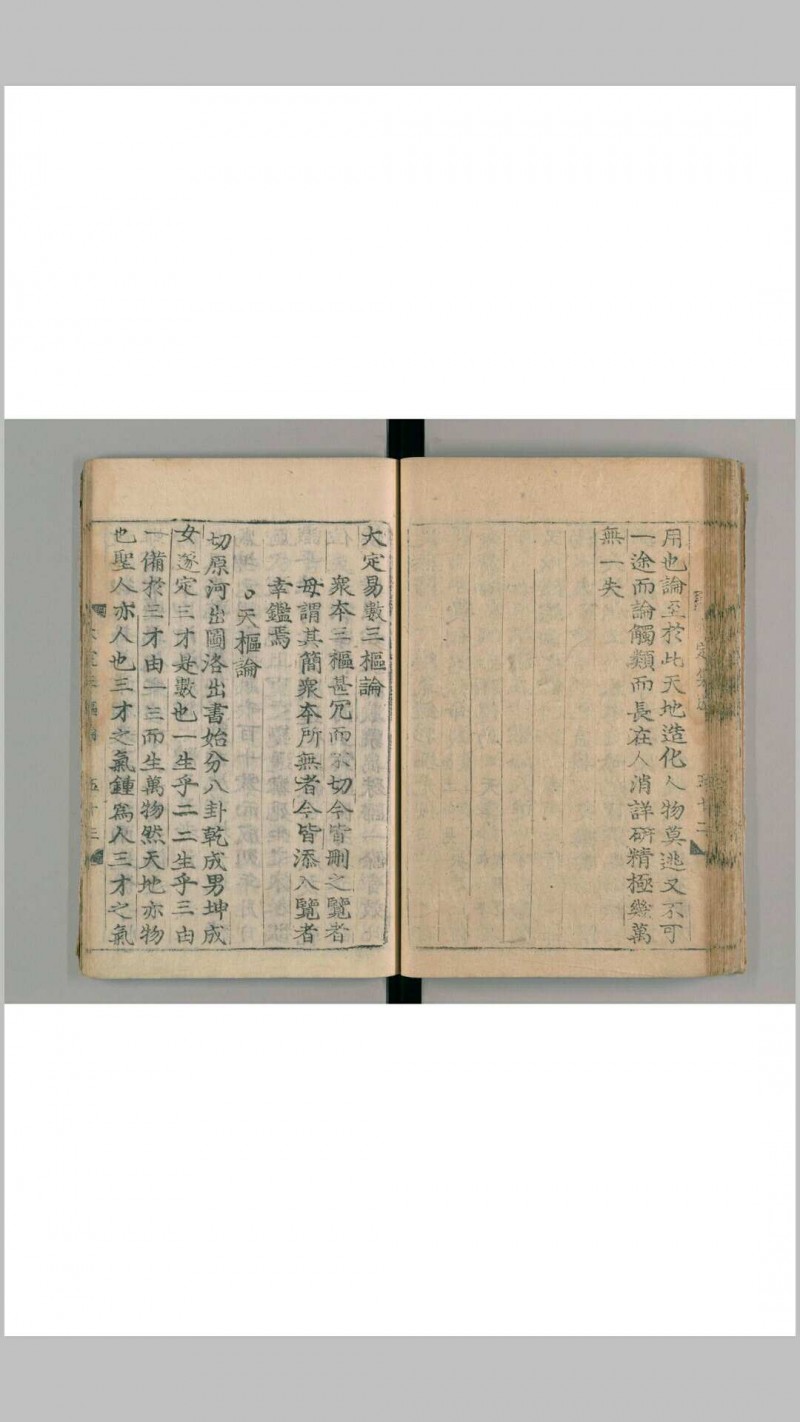 用也論至於此天地造化人物莫逃又不可
一途而論觸類而長在人消詳研精極幾萬
無一失
大定易數三樞論
衆本三樞甚冗而不切今皆刪之覽者
毋謂其簡衆本所無者今皆添入覽者
幸鑑焉
天樞論
切原河出圖洛出書始分八卦乾成男坤成
女遂定三才是數也一生乎二二生乎三由
一備於三才由一三而生萬物然天地亦物
也聖人亦人也三才之氣鍾爲人三才之氣
五十三